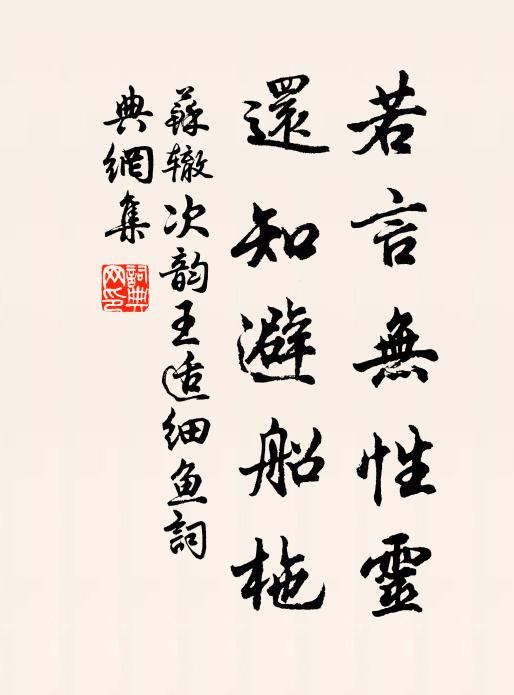 若言無性靈
還知避船柂
蘇辙次韵王适细鱼詞
典網集
詞典
网印